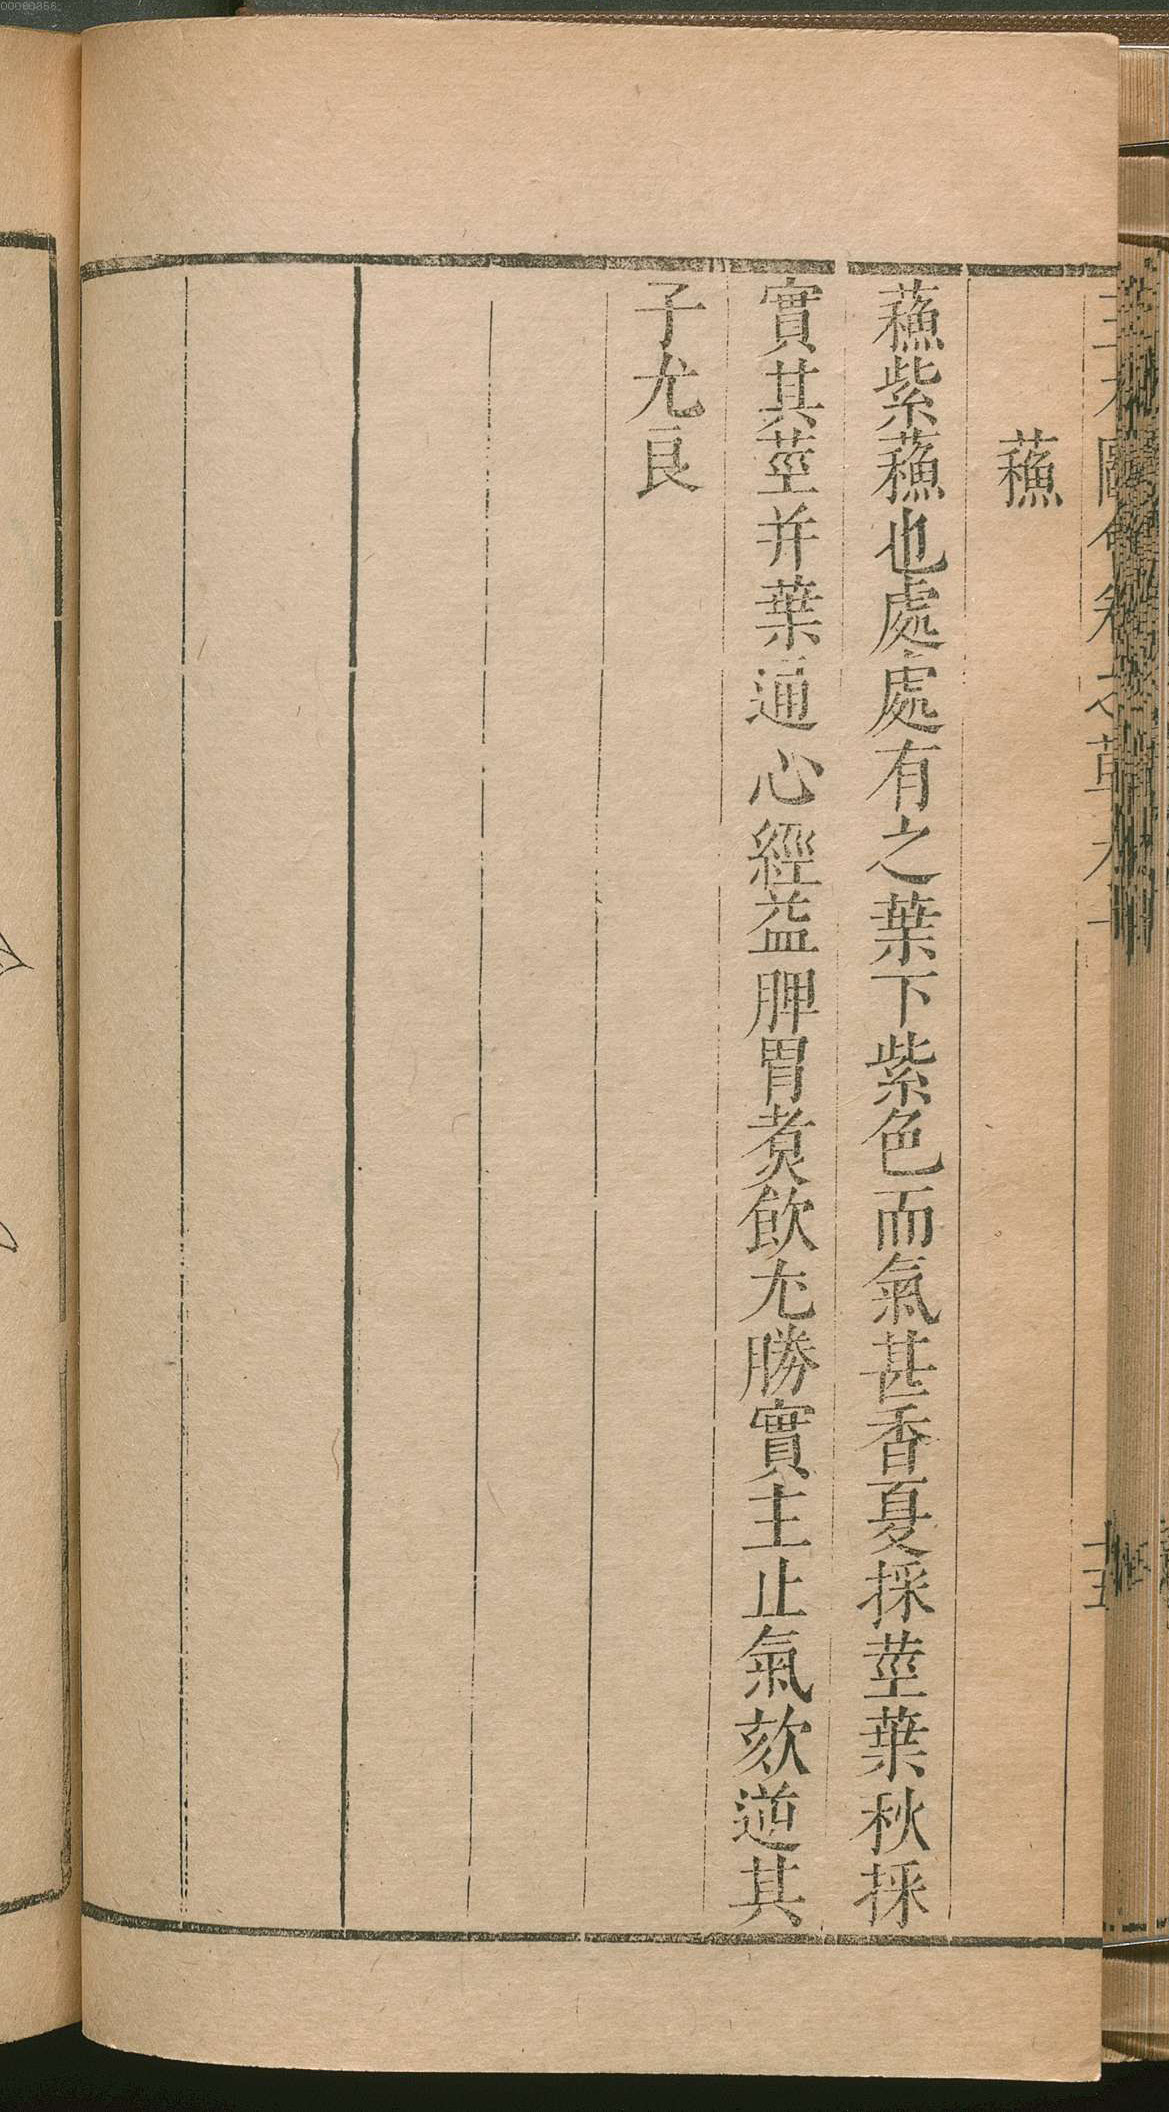 蘓
蘓紫蘓也處處有之葉下紫色而氣甚香夏採莖葉秋採
實其莖并葉通心經益脾胃煮飲尤勝實主止氣欬逆其
子尤良
00000856